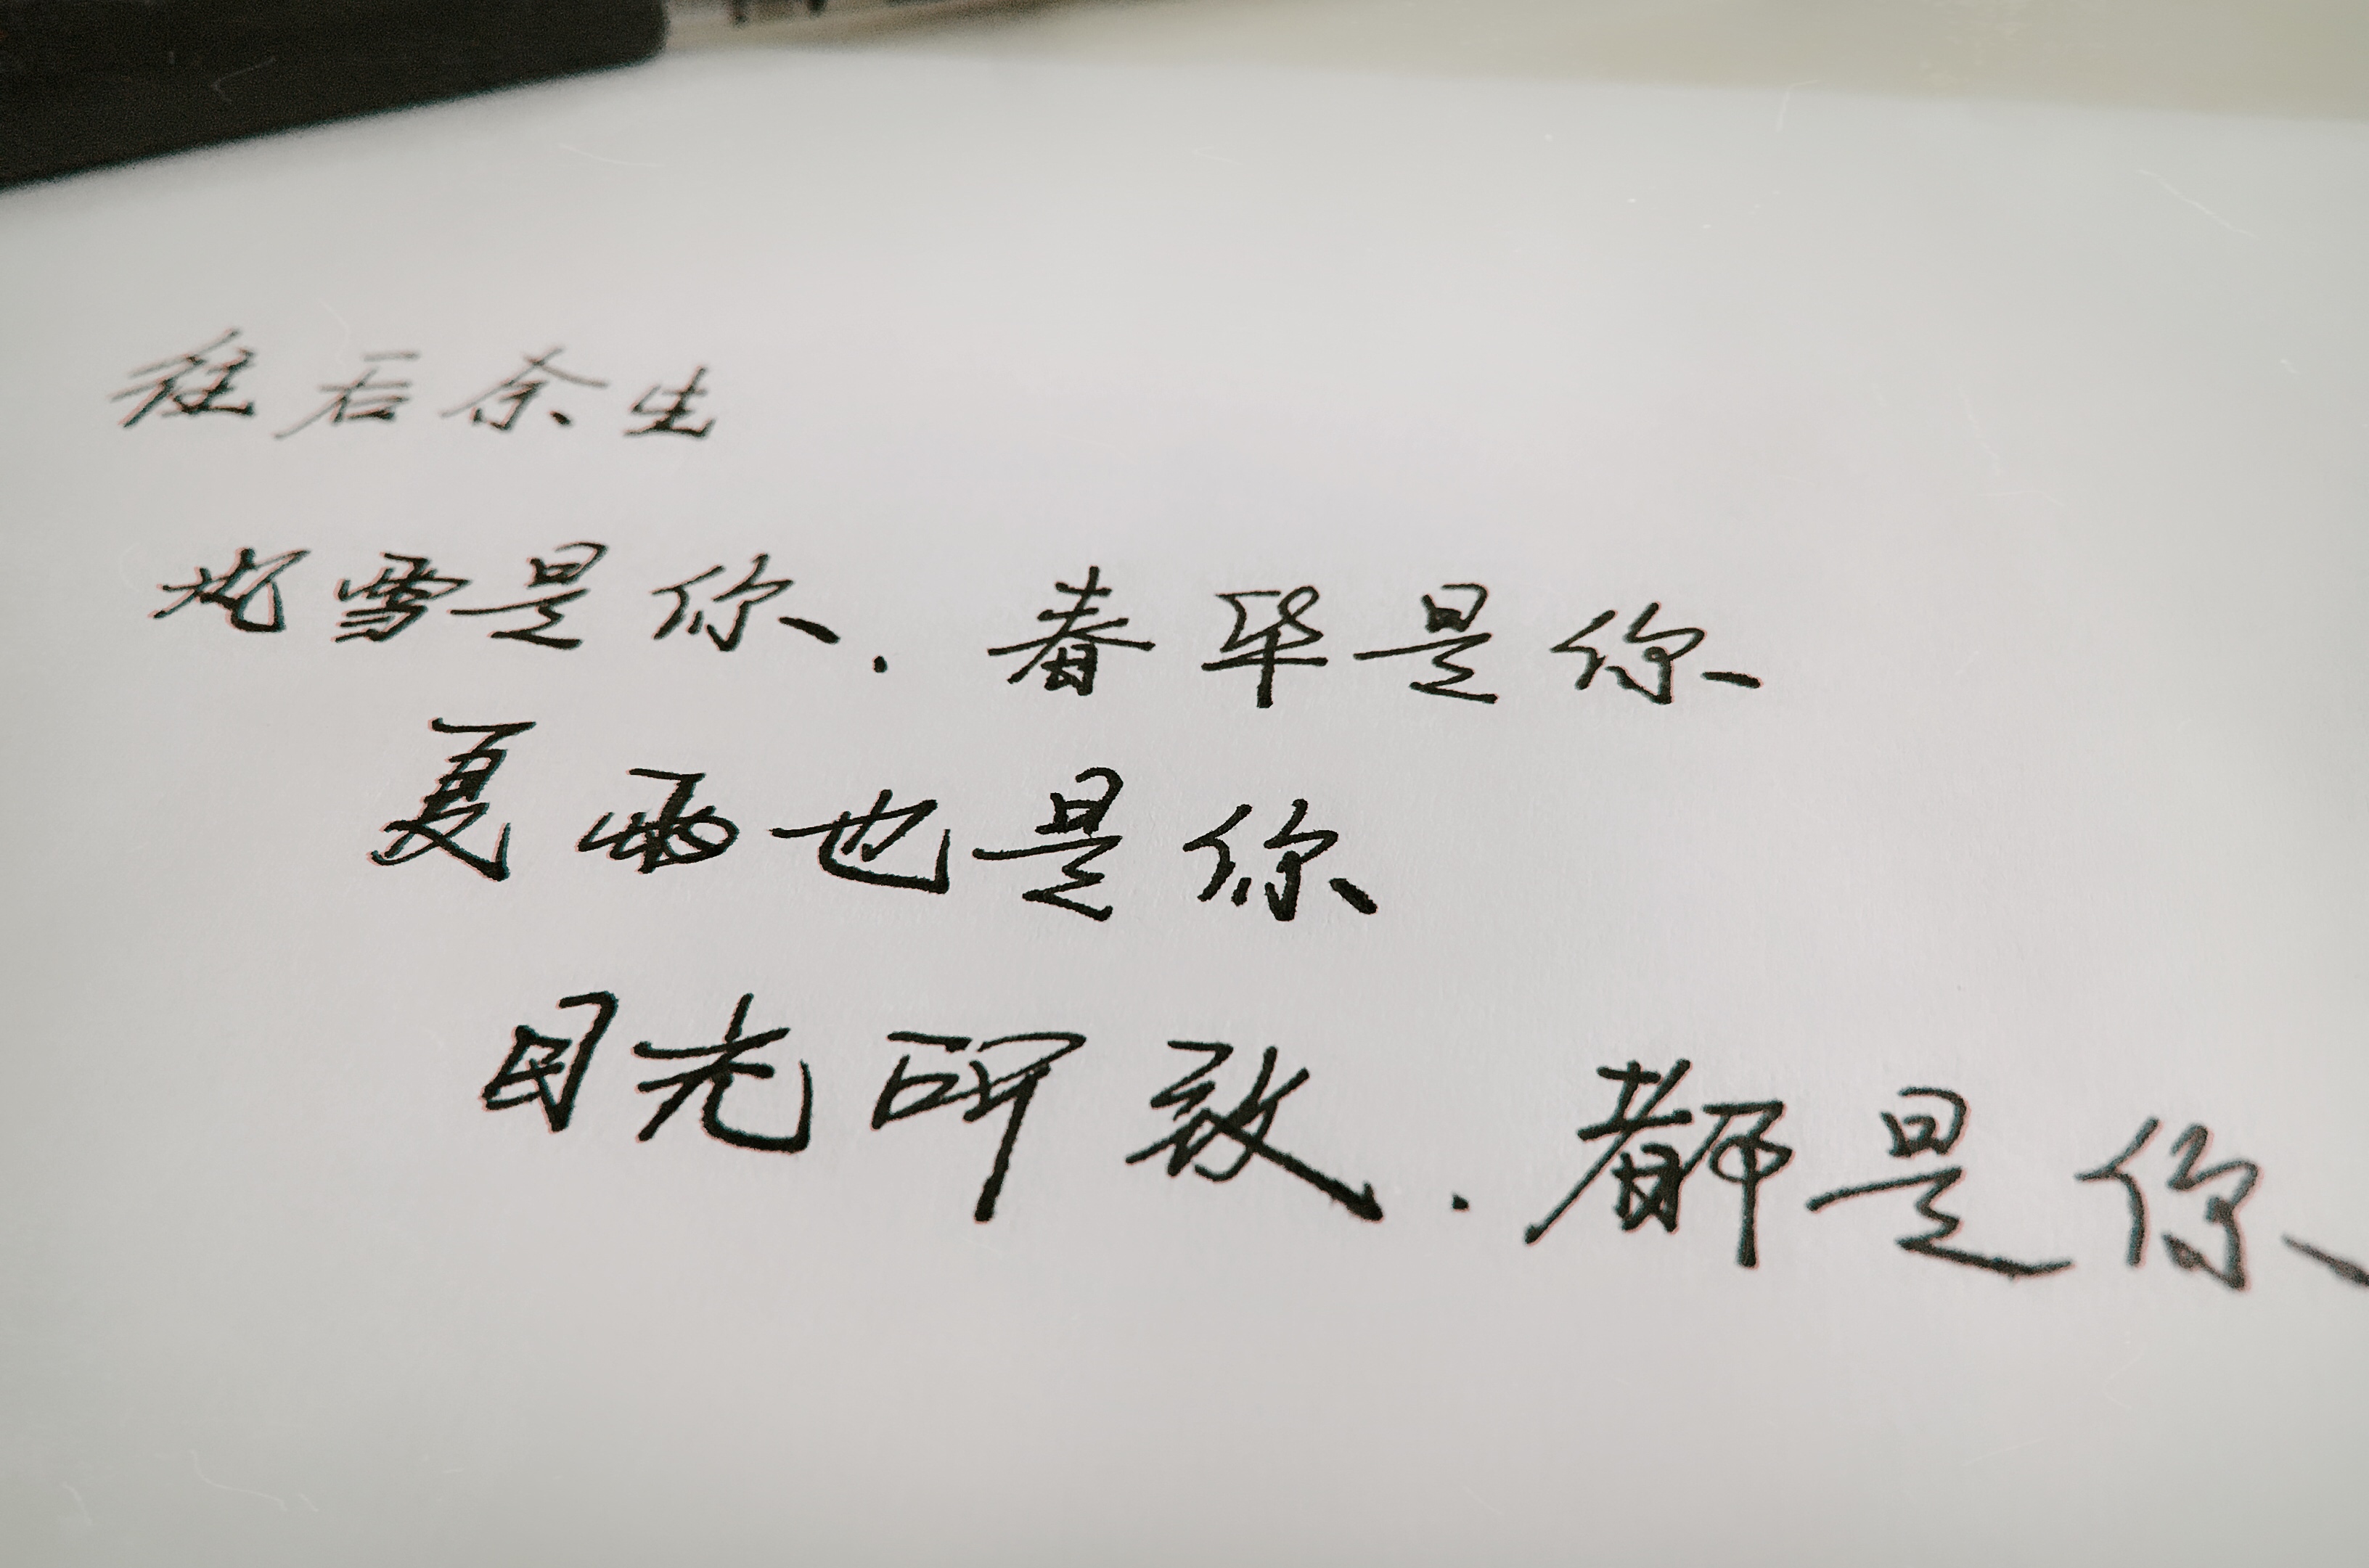 往后余生
风雪是你.春华是你
夏雨也是你
目光所致.都是你